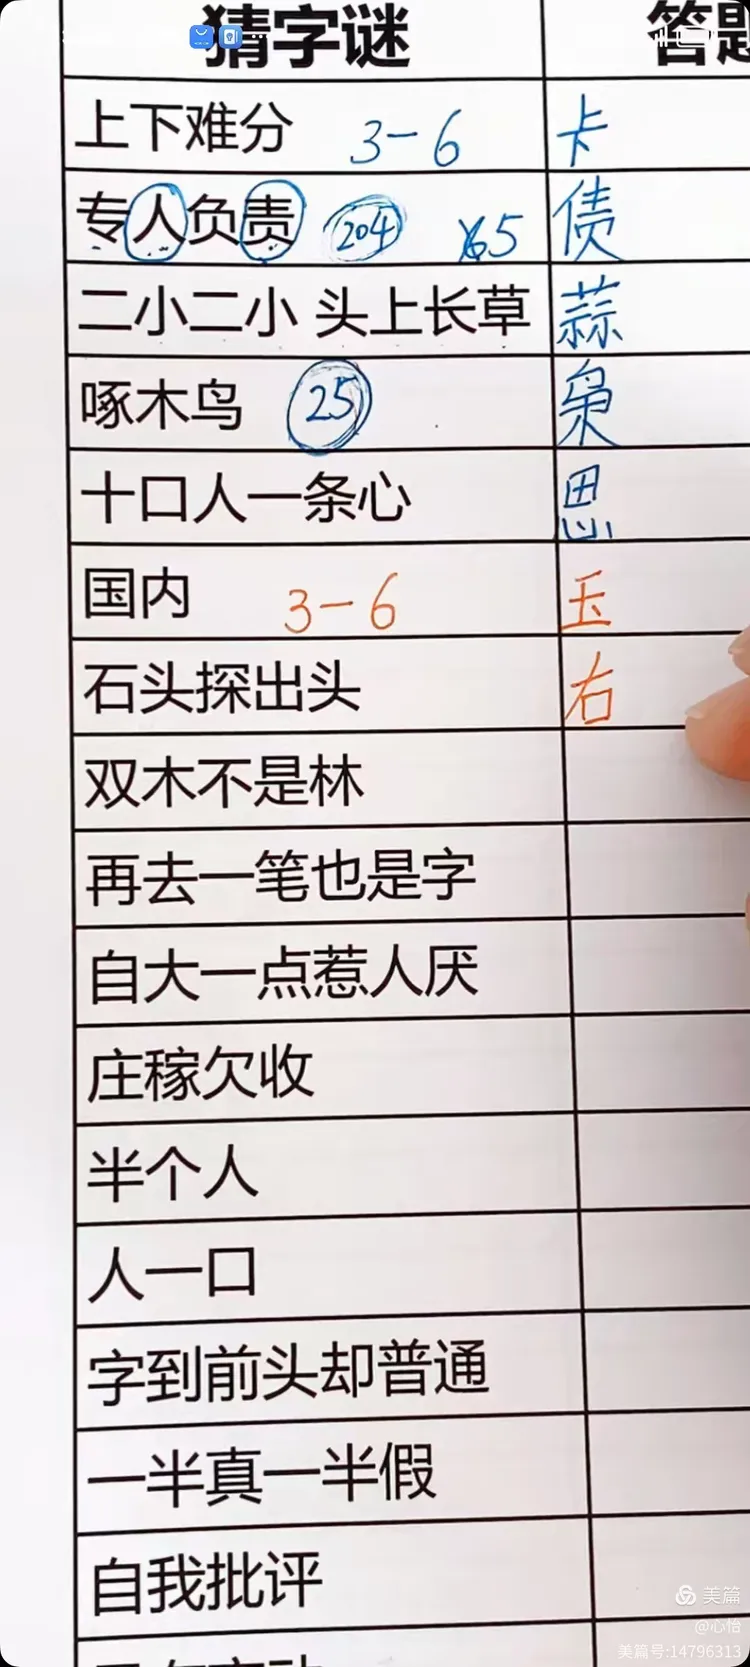 猜字谜 答题
上下难分 3-6 卡
专人负责 204 65 债
二小二小 头上长草 蒜
啄木鸟 25 枭
十口人一条心 思
国内 3-6 玉
石头探出头 右
双木不是林
再去一笔也是字
自大一点惹人厌
庄稼欠收
半个人
人一口
字到前头却普通
一半真一半假
自我批评
美篇
@心怡
美篇号:14796313